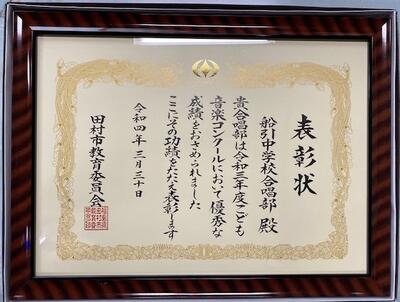 表彰状
船引中学校合唱部 殿
貴合唱部は令和三年度こども
音楽コンクールにおいて優秀な
成績をおさめられました
ここにその功績をたたえ表彰します
令和四年 三月三十日
田村市教育委員会